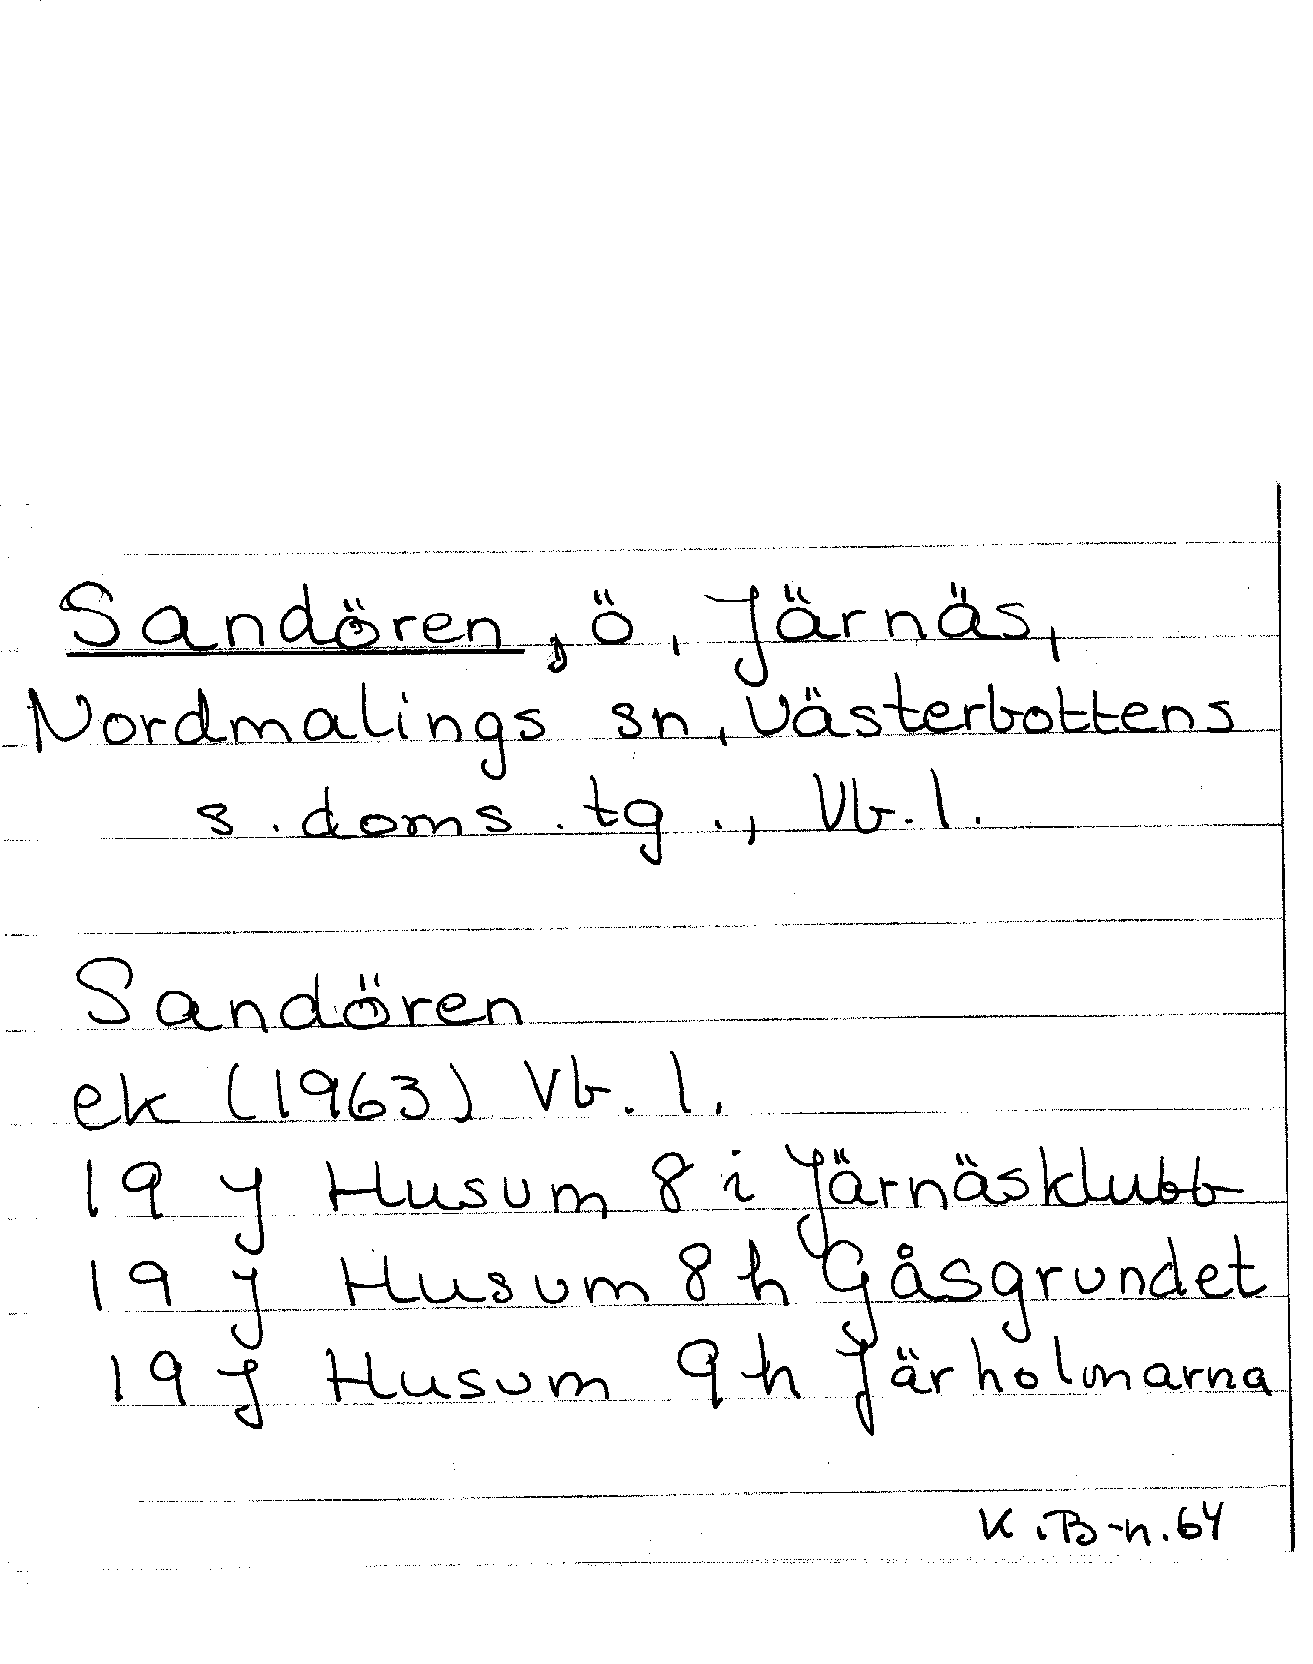 Sandören, ö, Järnäs,
Nordmalings sn, Västerbottens
s. doms. tg., Vb. l.
Sandören
ek (1963) Vb. l.
19 J Husum 8 i Järnäsklubb
19 J Husum 8 h Gåsgrundet
19 J Husum 9 h Järholmarna
K. B-n. 64